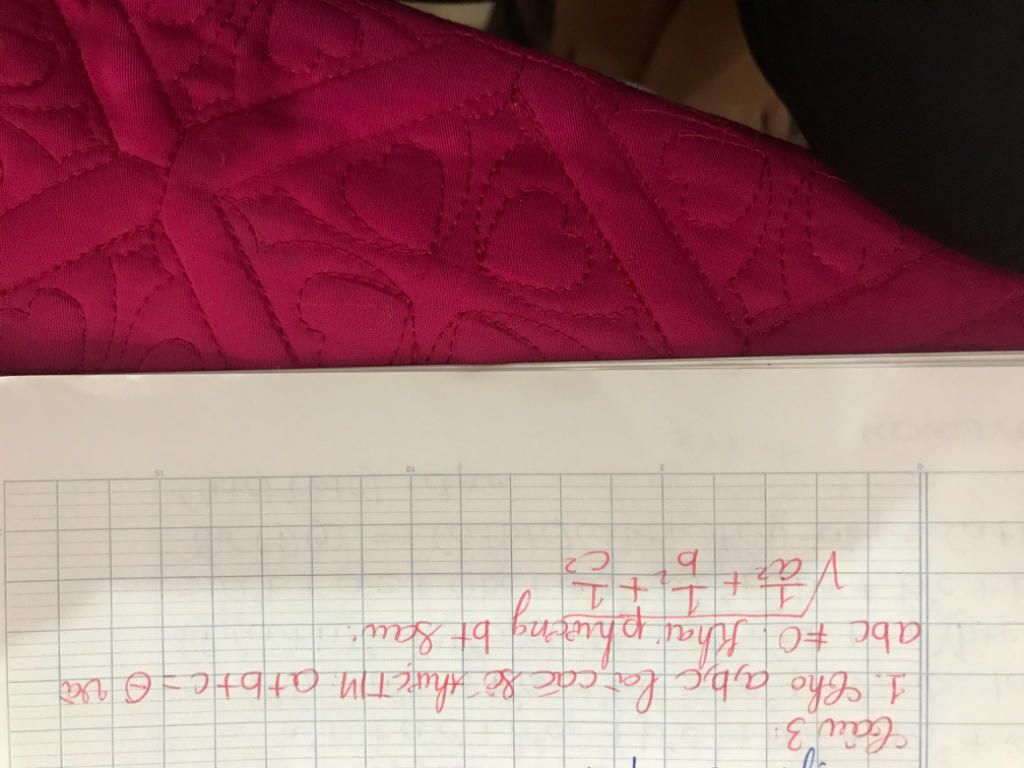 Câu 3:
1. Cho a,b,c là các số thực TM a+b+c = 0 và
abc ≠ 0. Khai phương bt sau:
√(1/a² + 1/b² + 1/c²)
0 5 10 15